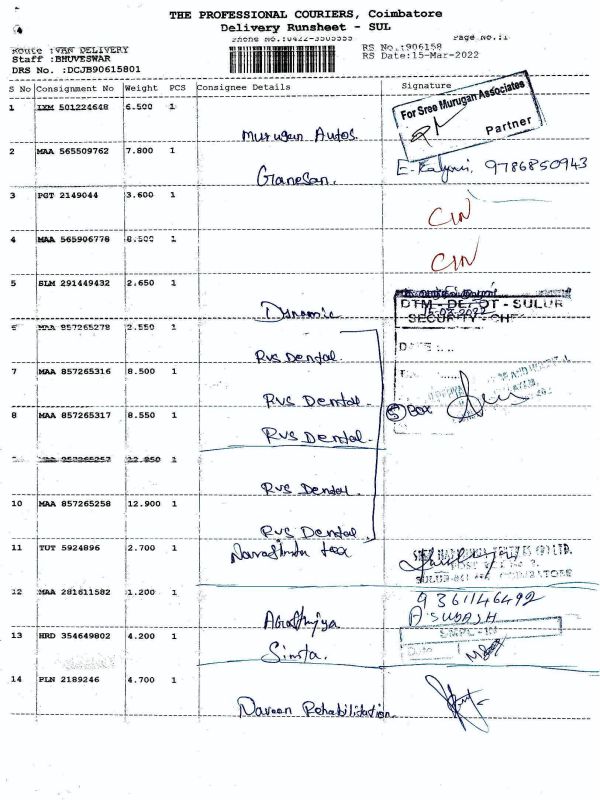 THE PROFESSIONAL COURIERS, Coimbatore
Delivery Runsheet - SUL
Page No.:1
Route :VAN DELIVERY
Staff :BHUVESWAR
DRS No. :DCJB90615801
RS No.:906158
RS Date:15-Mar-2022
S No Consignment No Weight PCS Consignee Details Signature
1 IXM 501224648 6.500 1 Murugan Autos.
For Sree Murugan Associates
Partner
2 MAA 565509762 7.800 1 Ganesan. 9786850943
3 PGT 2149044 3.600 1
4 MAA 565906778 8.500 1
5 SLM 291449432 2.650 1
DTM - DEPOT - SULUR
SECURITY - CH
6 MAA 857265278 2.550 1 Rvs Dental.
7 MAA 857265316 8.500 1 Rvs Dental.
8 MAA 857265317 8.550 1 Rvs Dental.
5 Box
1 Rvs Dental.
10 MAA 857265258 12.900 1 Rvs Dental.
11 TUT 5924896 2.700 1
12 MAA 281611582 1.200 1
9361146492
A SUDASH
13 HRD 354649802 4.200 1
14 PLN 2189246 4.700 1 Naveen Rehabilitation.